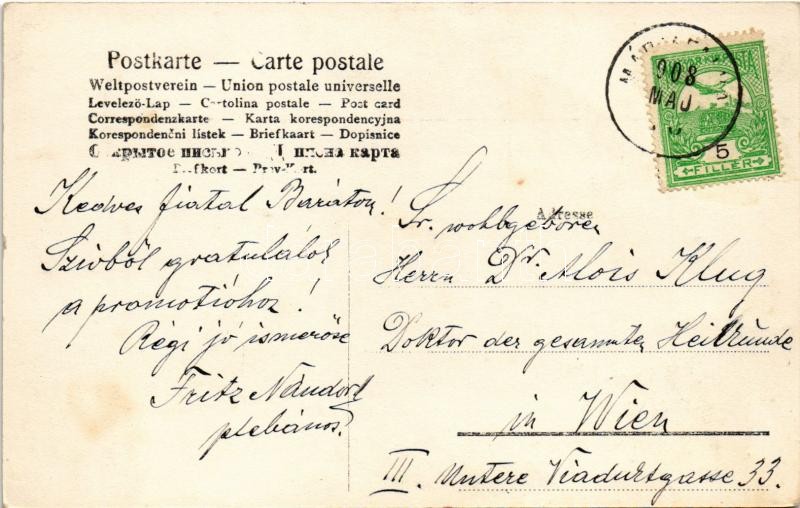 Postkarte — Carte postale
Weltpostverein — Union postale universelle
Levelező-Lap — Cartolina postale — Post card
Correspondenzkarte — Karta korespondencyjna
Korespondenční lístek — Briefkaart — Dopisnice
карта
Kedves fiatal Barátom!
Szivből gratulálok
a promotióhoz!
Régi jó ismerőse
Fritz Nándor
plebános.
908
MÁJ
5
FILLÉR
Adresse
Sr. wohlgeboren
Herrn Dr Alois Klug
Doktor der gesammten Heilkunde
in Wien
III. Untere Viaduktgasse 33.